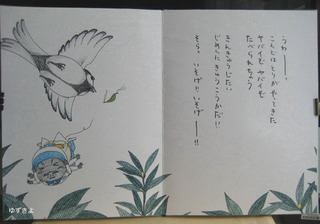 うわーー。
こんどはとりがやってきた
ヤバイぞ ヤバイぞ
たべられちゃう
きんきゅうじたい
じめんにきゅうこうかだ!!
そら。いそげ!!いそげーー!!
ゆずきよ